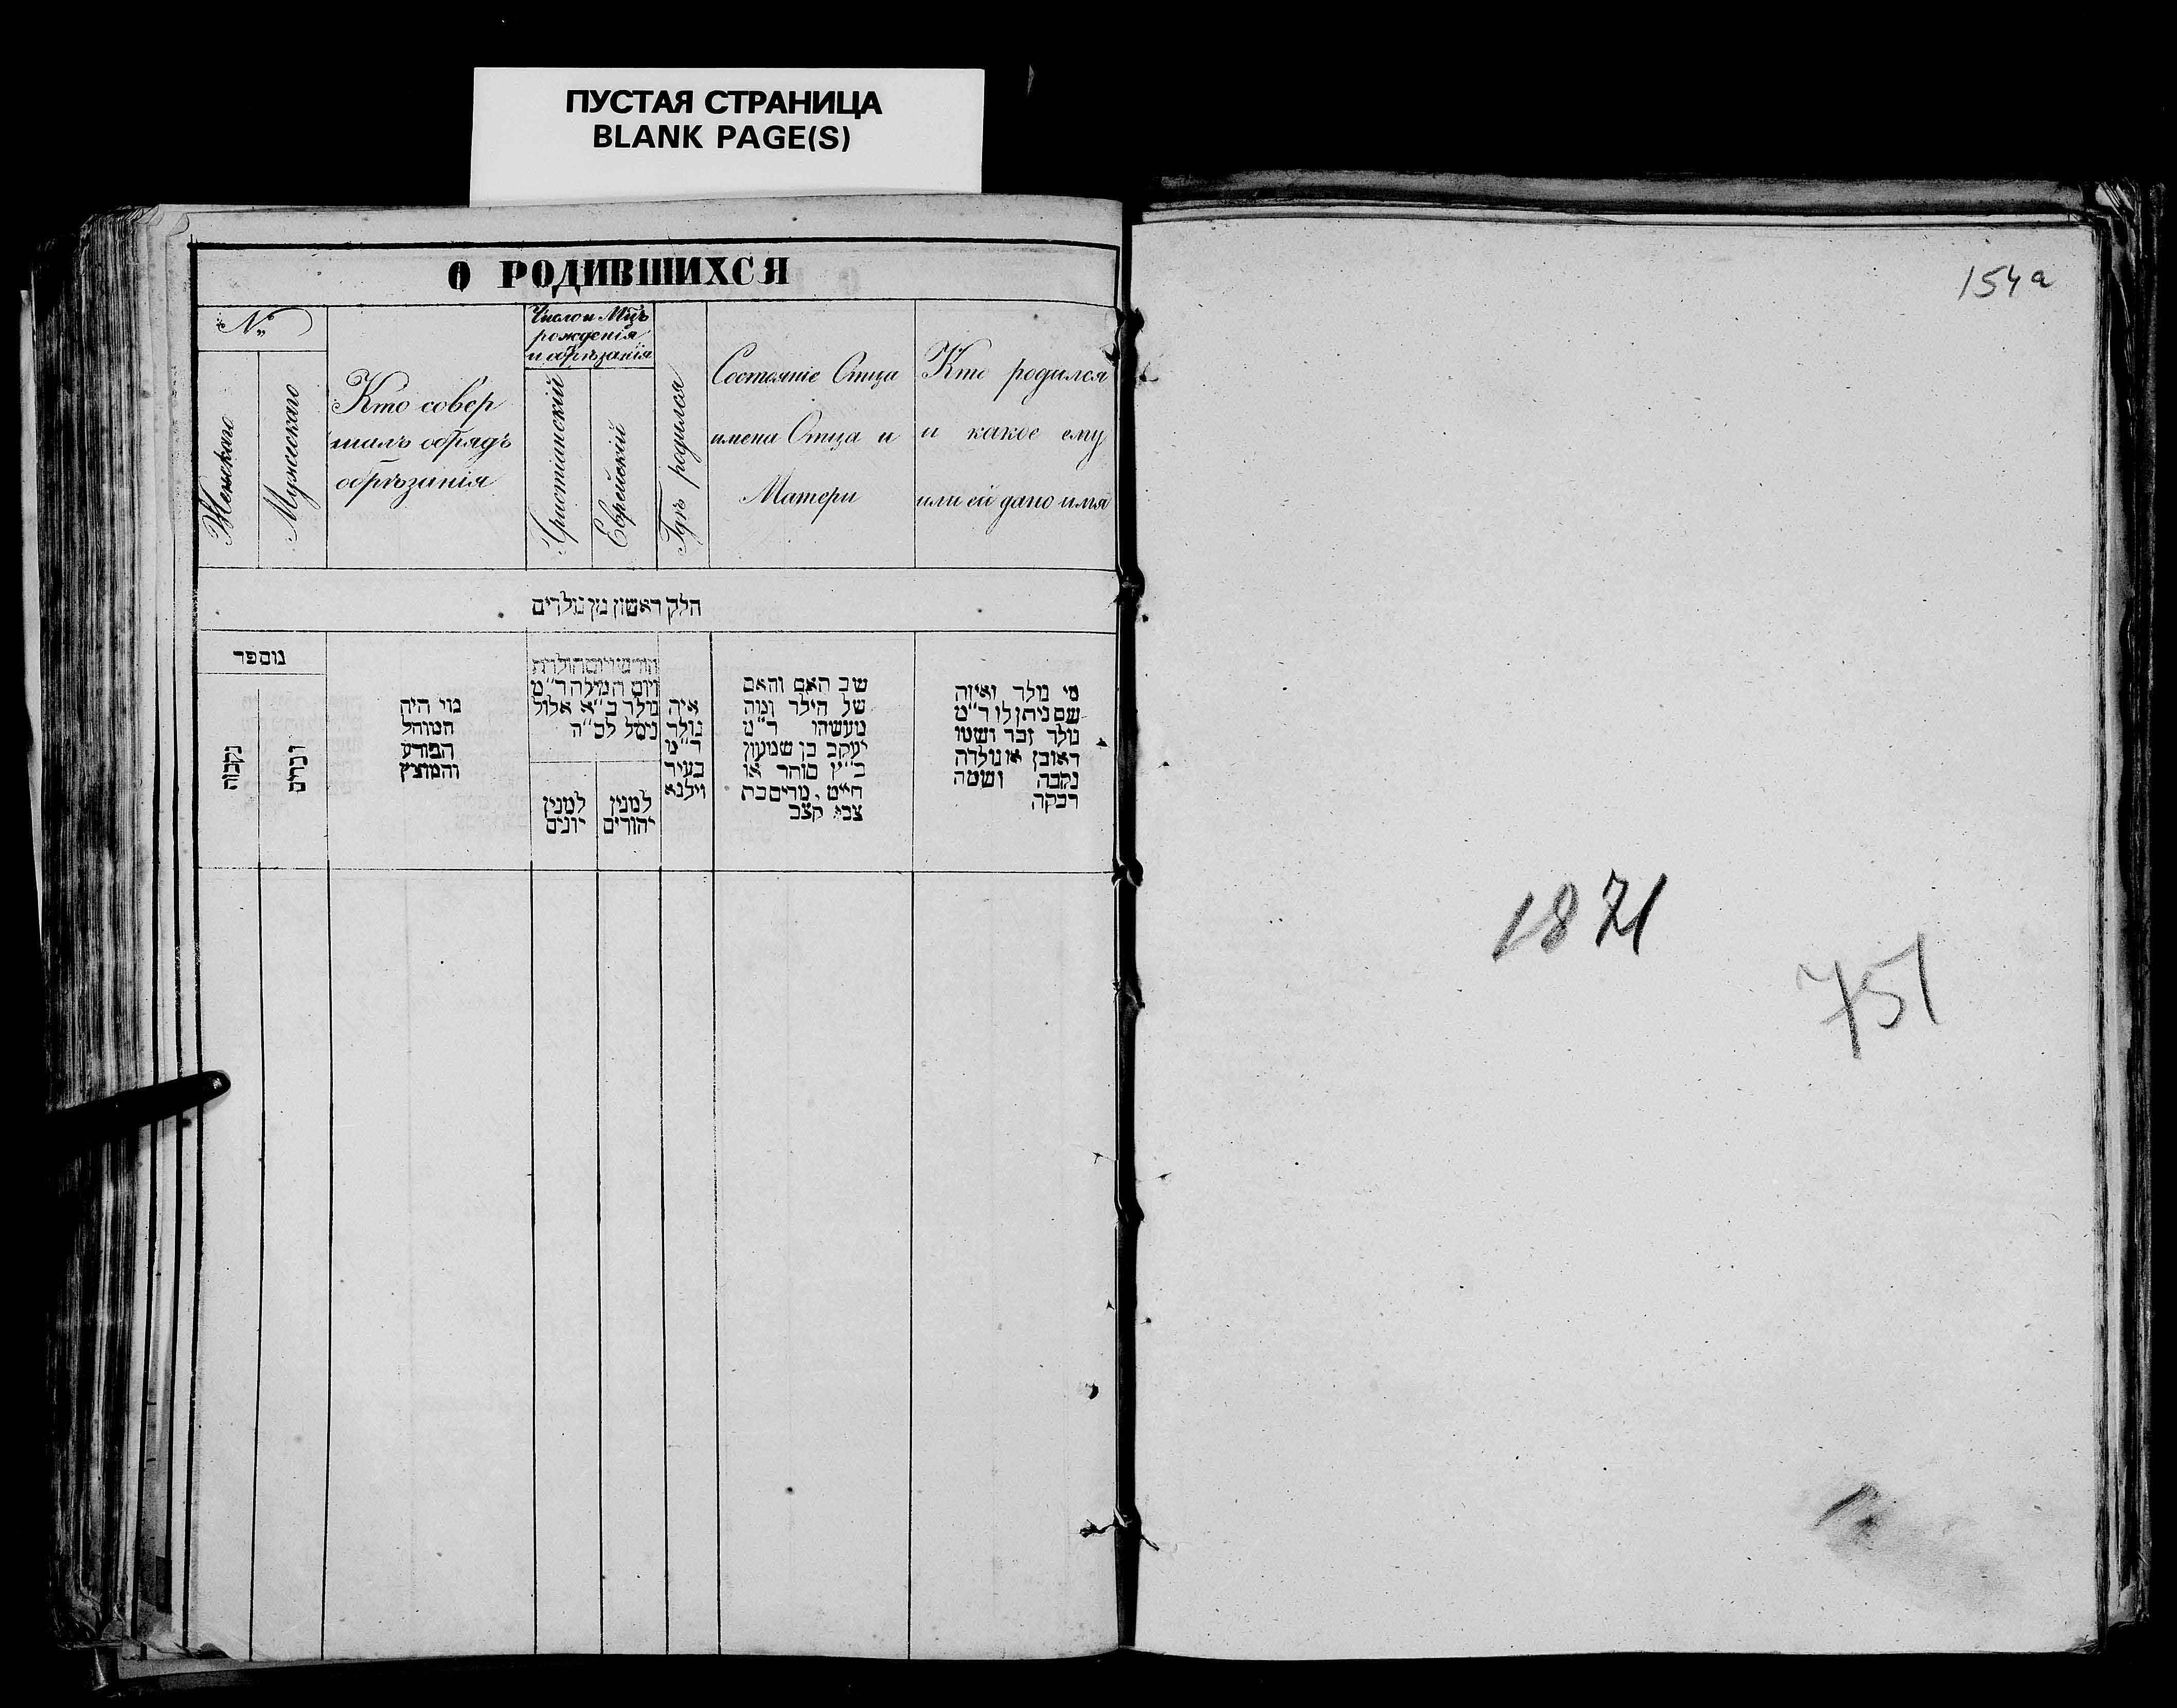 ПУСТАЯ СТРАНИЦА
BLANK PAGE(S)
О РОДИВШИХСЯ
№
Женскаго
Мужескаго
Кто совер
шалъ обрядъ
обрѣзанія
Число и Мцъ
рожденія
и обрѣзанія
Христіанскій
Еврейскій
Гдѣ родился
Состояніе Отца
имена Отца и
Матери
Кто родился
и какое ему
или ей дано имя
חלק ראשון מן נולדים
מספר
נקבות
זכרים
מי היה
המוהל
הפורע
והמוצץ
ויום המילה ר"מ
נולד ב"א אלול
נימל לס"ה
למנין
יונים
למנין
יהודים
איה
נולד
ר"מ
בעיר
וילנא
שב האם והאם
של הילד ומה
מעשהו ר"מ
יעקב בן שמעון
כ"ץ סוחר או
חייט, מרים בת
צבי קצב
מי נולד ואיזה
שם ניתן לו ר"מ
נולד זכר ושמו
ראובן או נולדה
נקבה ושמה
רבקה
154a
1871
751